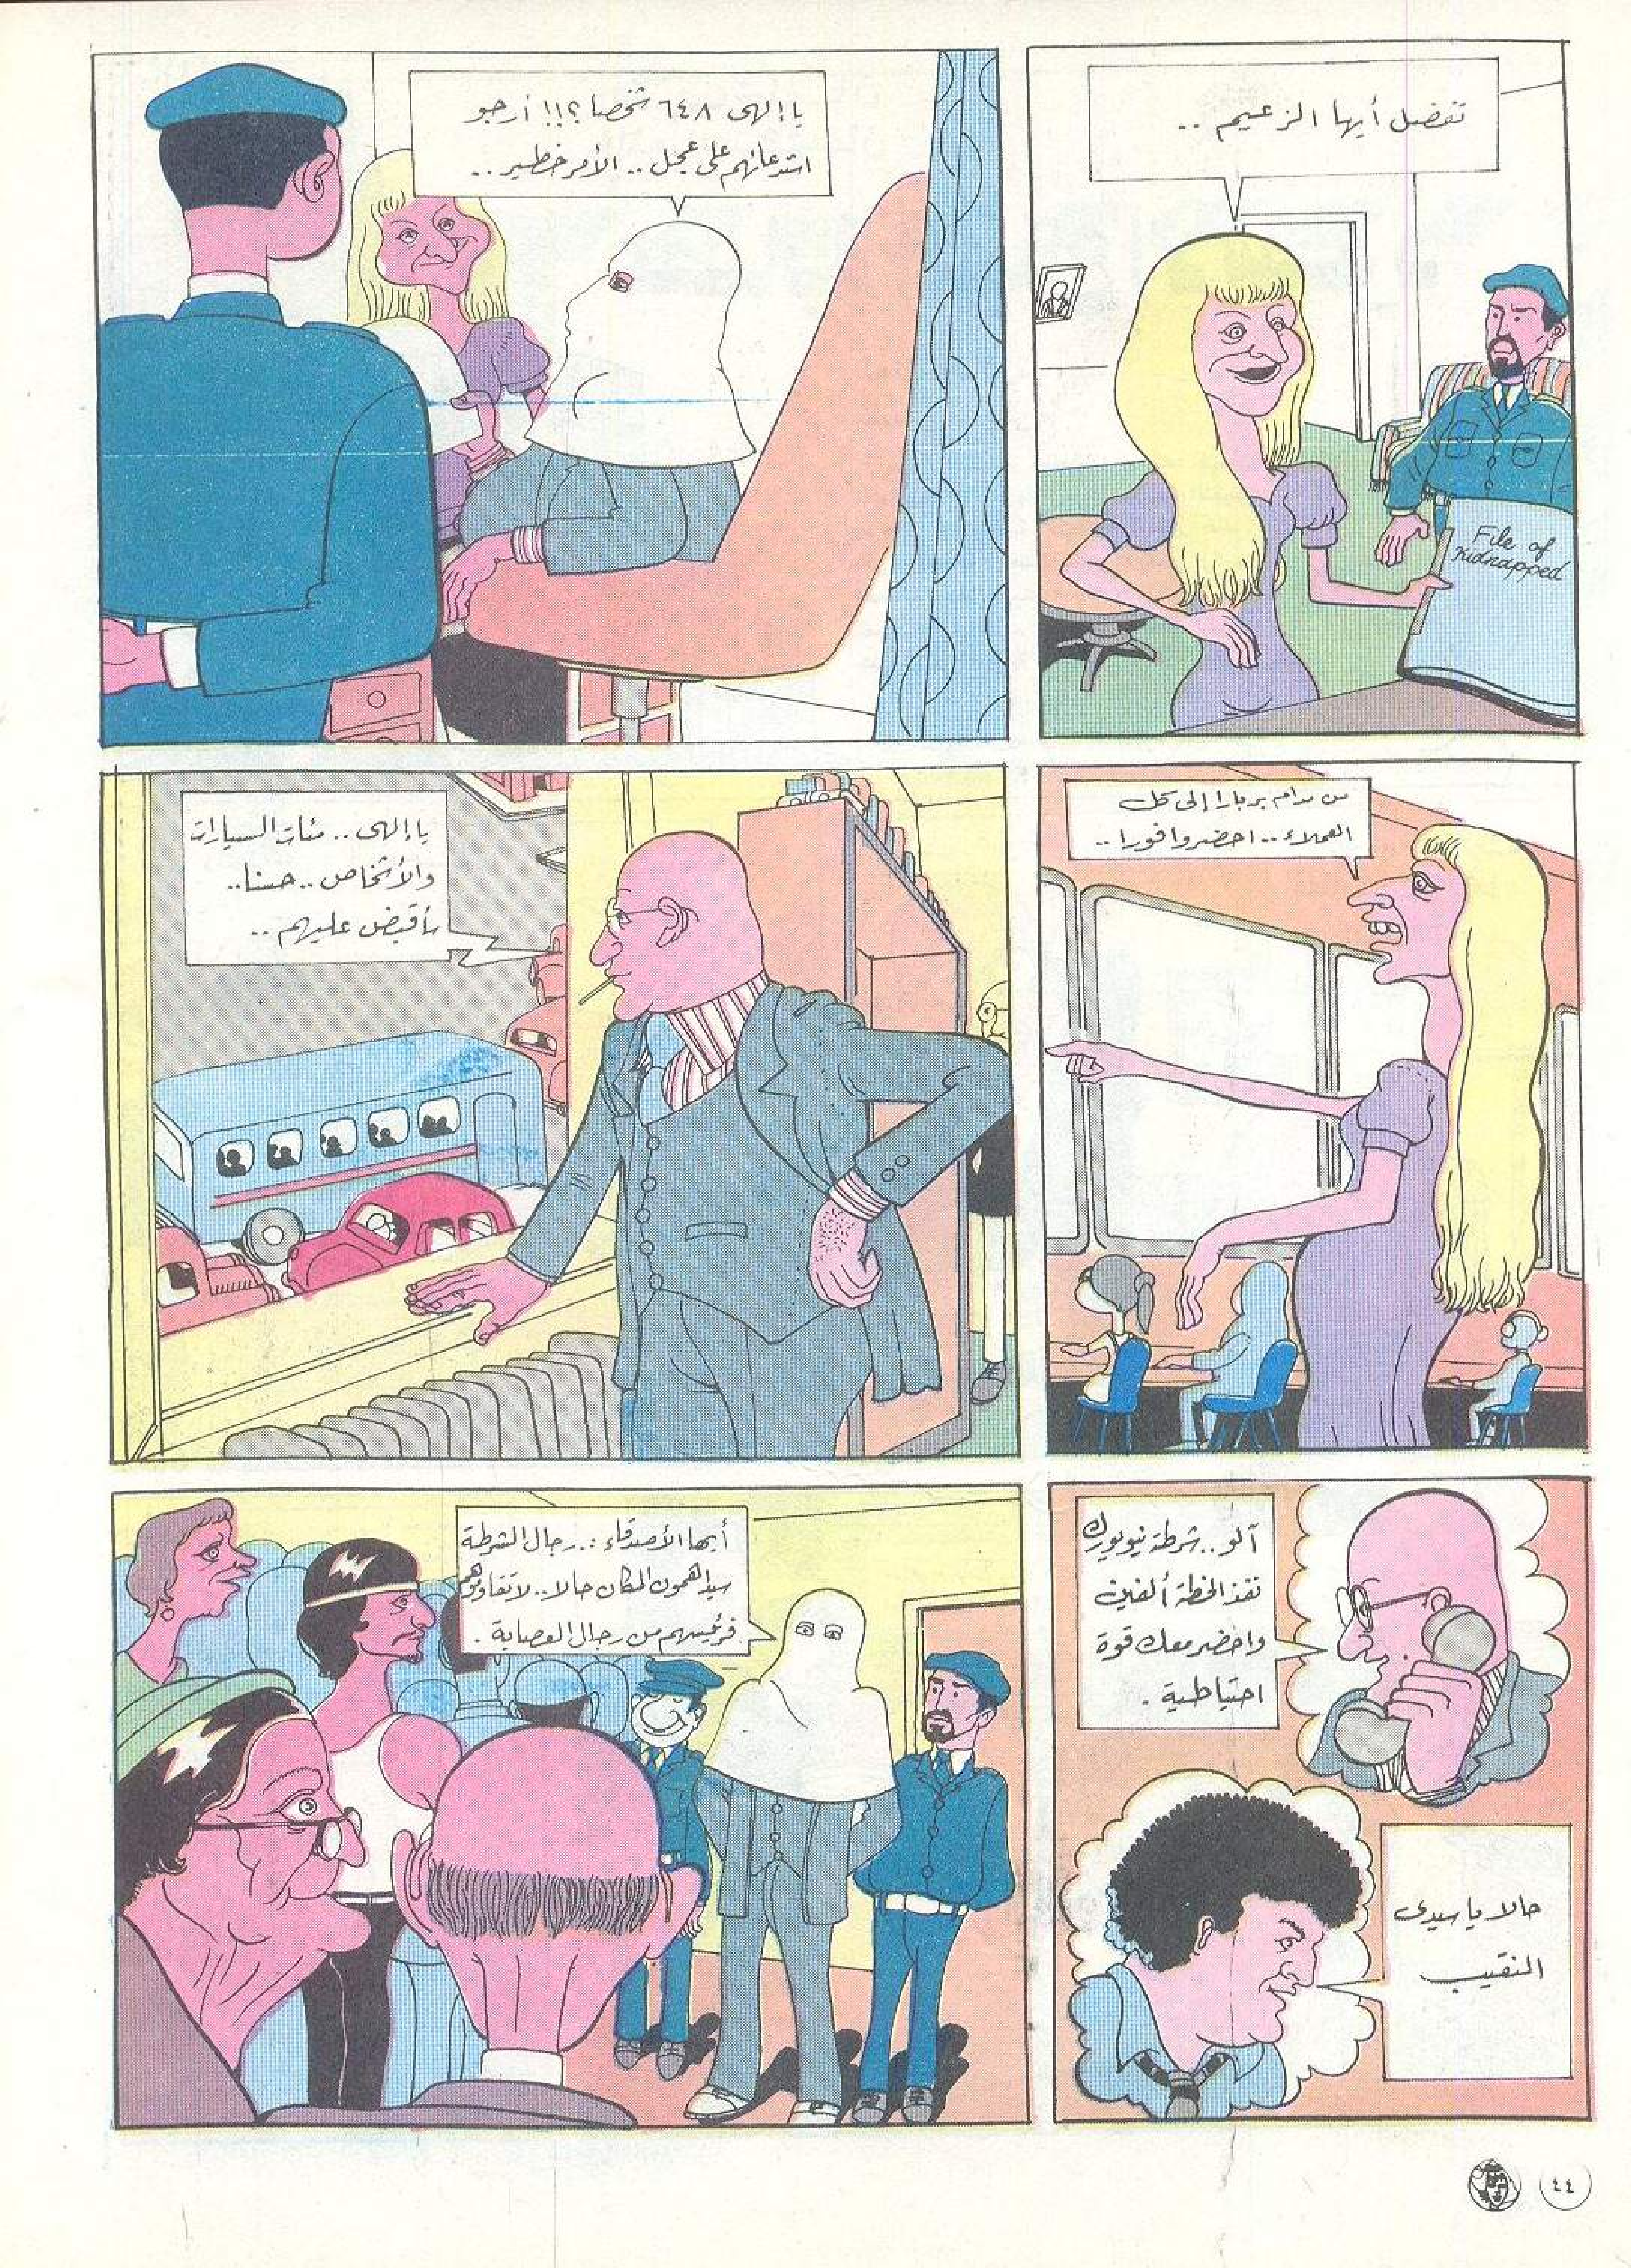 تفضل أيها الزعيم ..
File of
Kidnapped
يا إلهى ٦٤٨ شخصا؟!! أرجو
استدعائهم على عجل .. الأمر خطير ..
من مدام بربارا إلى كل
العملاء .. احضروا فورا ..
يا إلهى .. مئات السيارات
والأشخاص .. حسنا ..
سأقبض عليهم ..
آلو .. شرطة نيويورك
نفذ الخطة ألفين
واحضر معك قوة
احتياطية .
حالا يا سيدى
النقيب
أيها الأصدقاء : .. رجال الشرطة
سيداهمون المكان حالا .. لا تقاوموهم
فرئيسهم من رجال العصابة .
٤٤